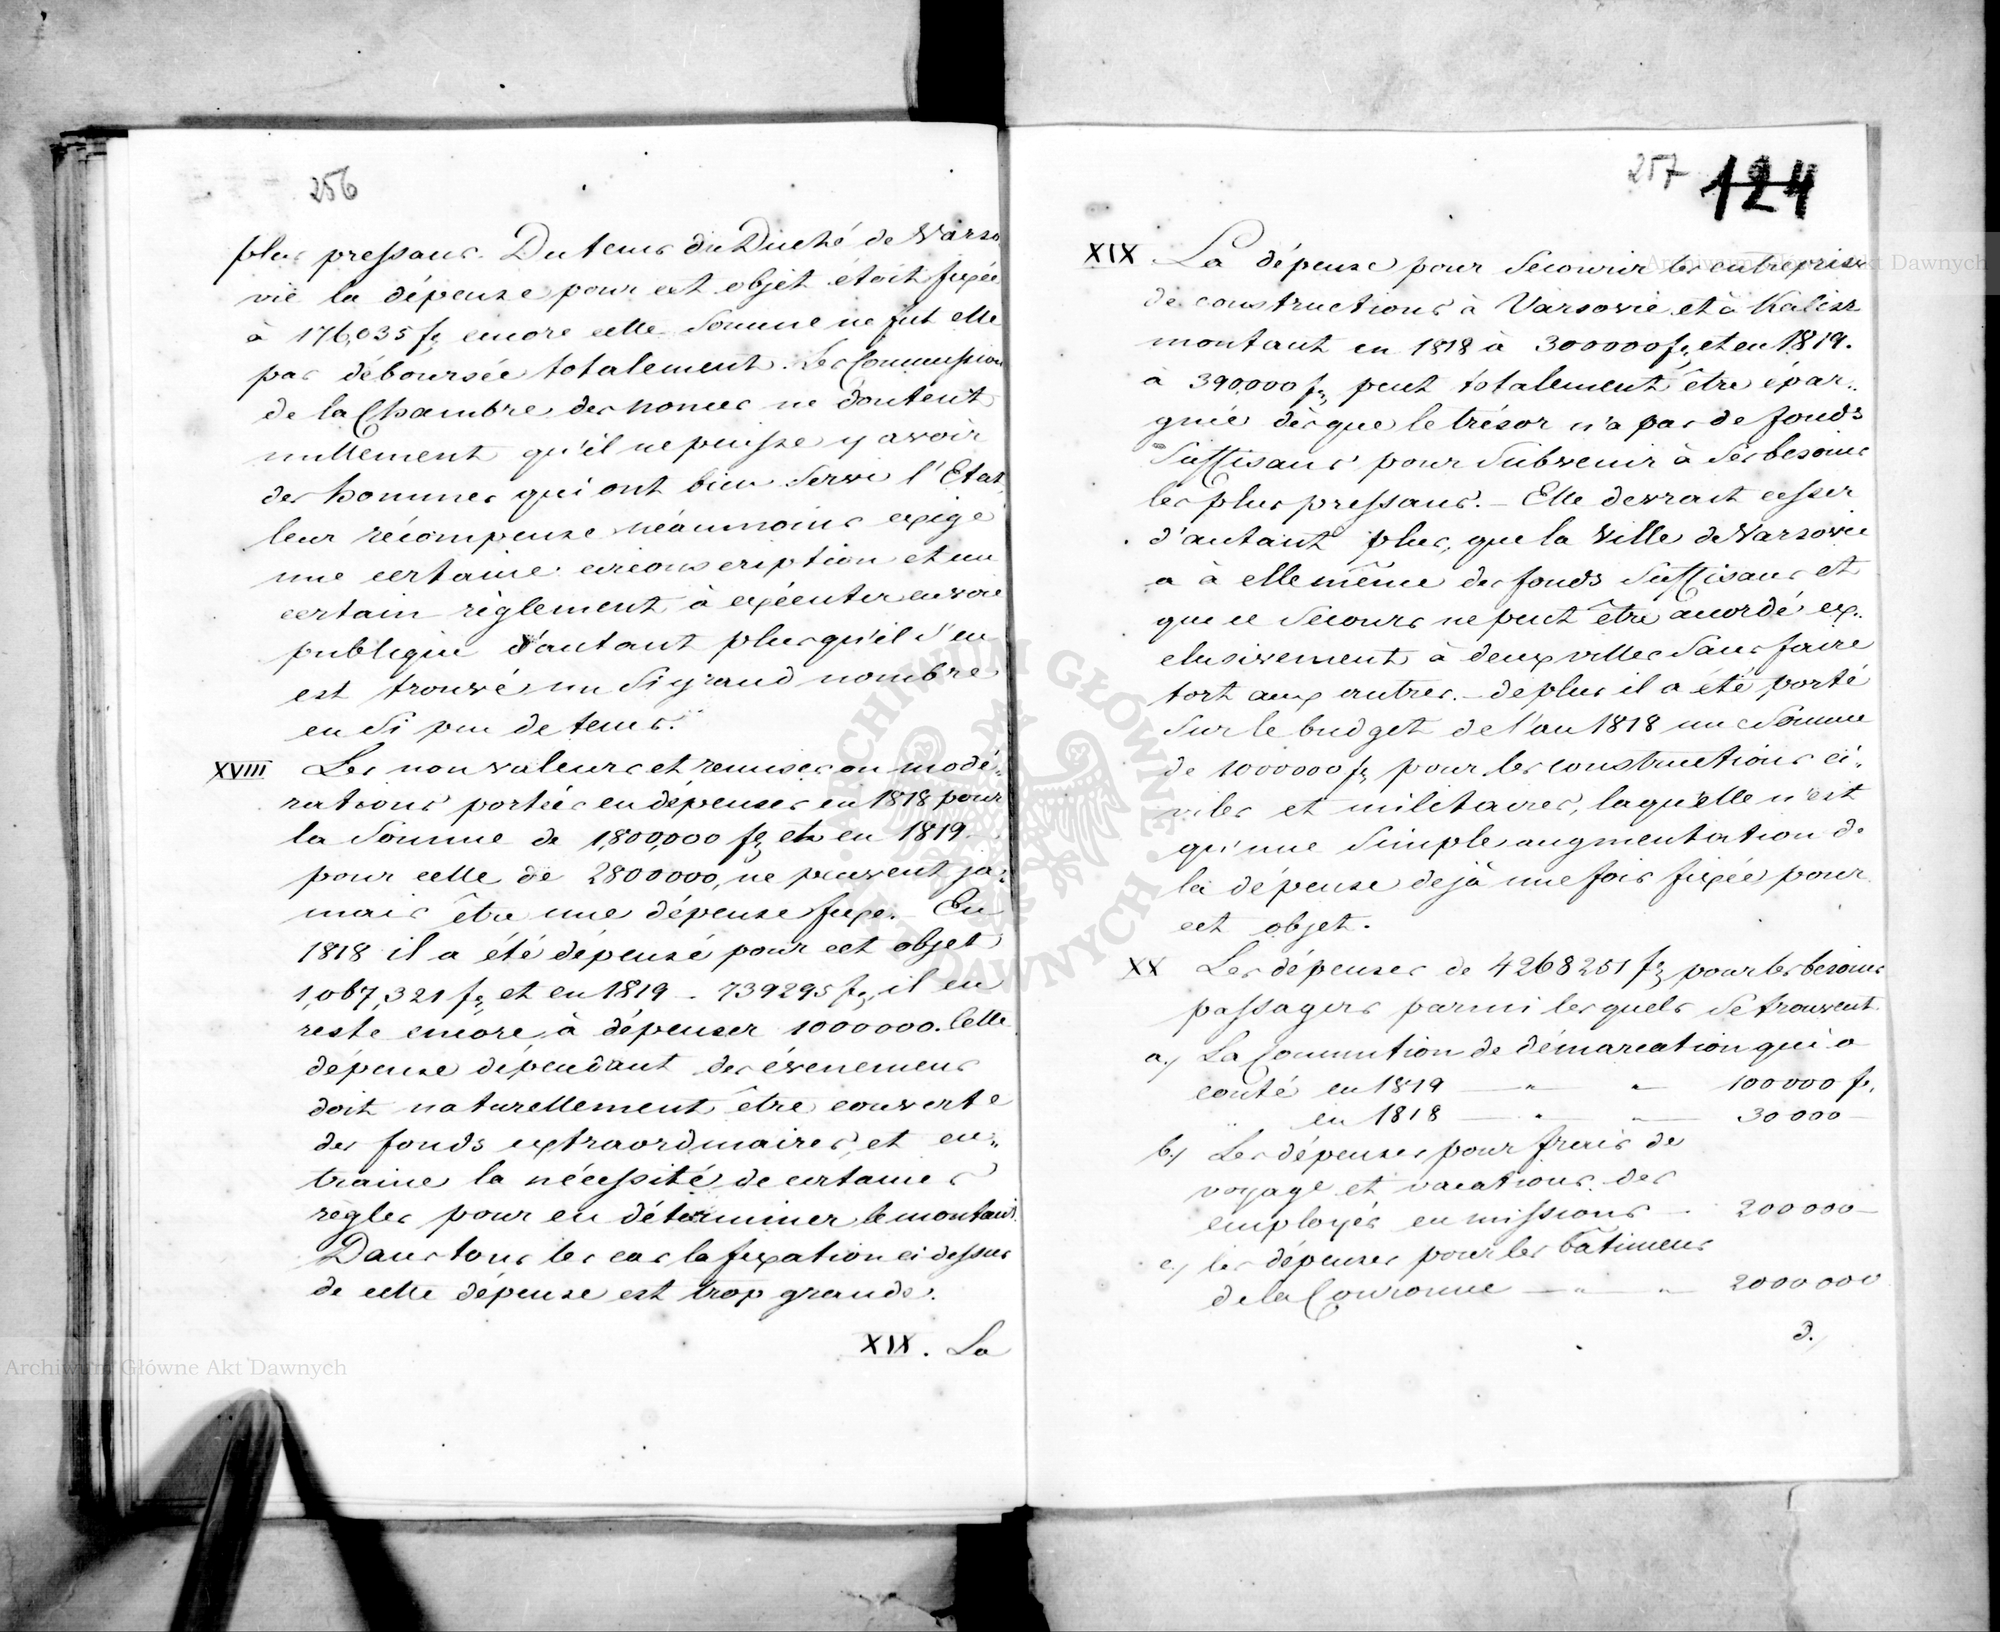 256
plus pressans. Du tems du Duché de Varso
vie la dépense pour cet objet étoit fixée
à 176,035 fs, encore cette Somme ne fut elle
pas déboursée totalement. Les Commissions
de la Chambre des nonces ne doutent
nullement qu'il ne puisse y avoir
des hommes qui ont bien Servi l'Etat,
leur récompense néaumoins exige
une certaine circonscription et un
certain règlement à exécuter en voie
publique d'autant plus qu'il s'en
est trouvé un Si grand nombre
en Si peu de tems.
XVIII Les non valeurs et remises ou modé-
rations portées en dépenses en 1818 pour
la Somme de 1,800,000 fs et en 1819
pour celle de 2800000, ne peuvent ja-
mais être une dépense fixe. En
1818 il a été dépensé pour cet objet
1,067,321 fs, et en 1819 - 739295 fs, il en
reste encore à dépenser 1000000. Cette
dépense dépendant des évenemens
doit naturellement être couverte
des fonds extraordinaires, et en-
traine la nécessité de certaines
règles pour en déterminer le montant.
Dans tous les cas la fixation ci dessus
de cette dépense est trop grande.
XIX. La
257 124
XIX La dépense pour Secourir les entreprises
de constructions à Varsovie et à Kalisz
montant en 1818 à 300000 fs, et en 1819.
à 390.000 fs, peut totalement être épar-
gnée dès que le trésor n'a pas de fonds
Suffisans pour Subvenir à Ses besoins
les plus pressans. - Elle devrait cesser
d'autant plus, que la Ville de Varsovie
a à elle même des fonds Suffisans et
que ce Secours ne peut être accordé ex-
clusivement à deux villes Sans faire
tort aux autres. - de plus il a été porté
Sur le budget de l'an 1818 une Somme
de 1000000 fs pour les constructions ci-
viles et militaires, laqu'elle n'est
qu'une Simple augmentation de
la dépense dejà une fois fixée pour
cet objet.
XX Les dépenses de 4268251 fs, pour les besoins
passagers parmi lesquels Se trouvent
a., La Commition de démarcation qui a
couté en 1819 — " " — 100000 fs,
" en 1818 — " " — 30000 —
b., Les dépenses pour frais de
voyage et vacations des
employés en missions — 200000 —
c., les dépenses pour les bâtimens
de la Couronne — " — " — 2000000
d.,
Archiwum Główne Akt Dawnych